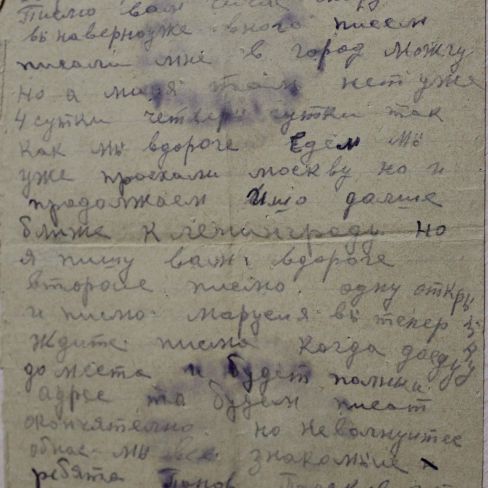 Писмо вам
вы наверно уже много писем
писали мне в город Можгу
но а меня там нет уже
4 сутки четверы сутки так
как мы вдороге Едем мы
уже проехали москву но и
продолжаем ишо далше
ближе кленинграду но
я пишу вам вдороге
второе писмо. одну откры
и писмо. Маруся вы тепер
ждите писмо когда доеду
до места и будет полный
адрес та будем писат
окончателно. но неволнуитес
обнас мы все знакомые
ребята Попов